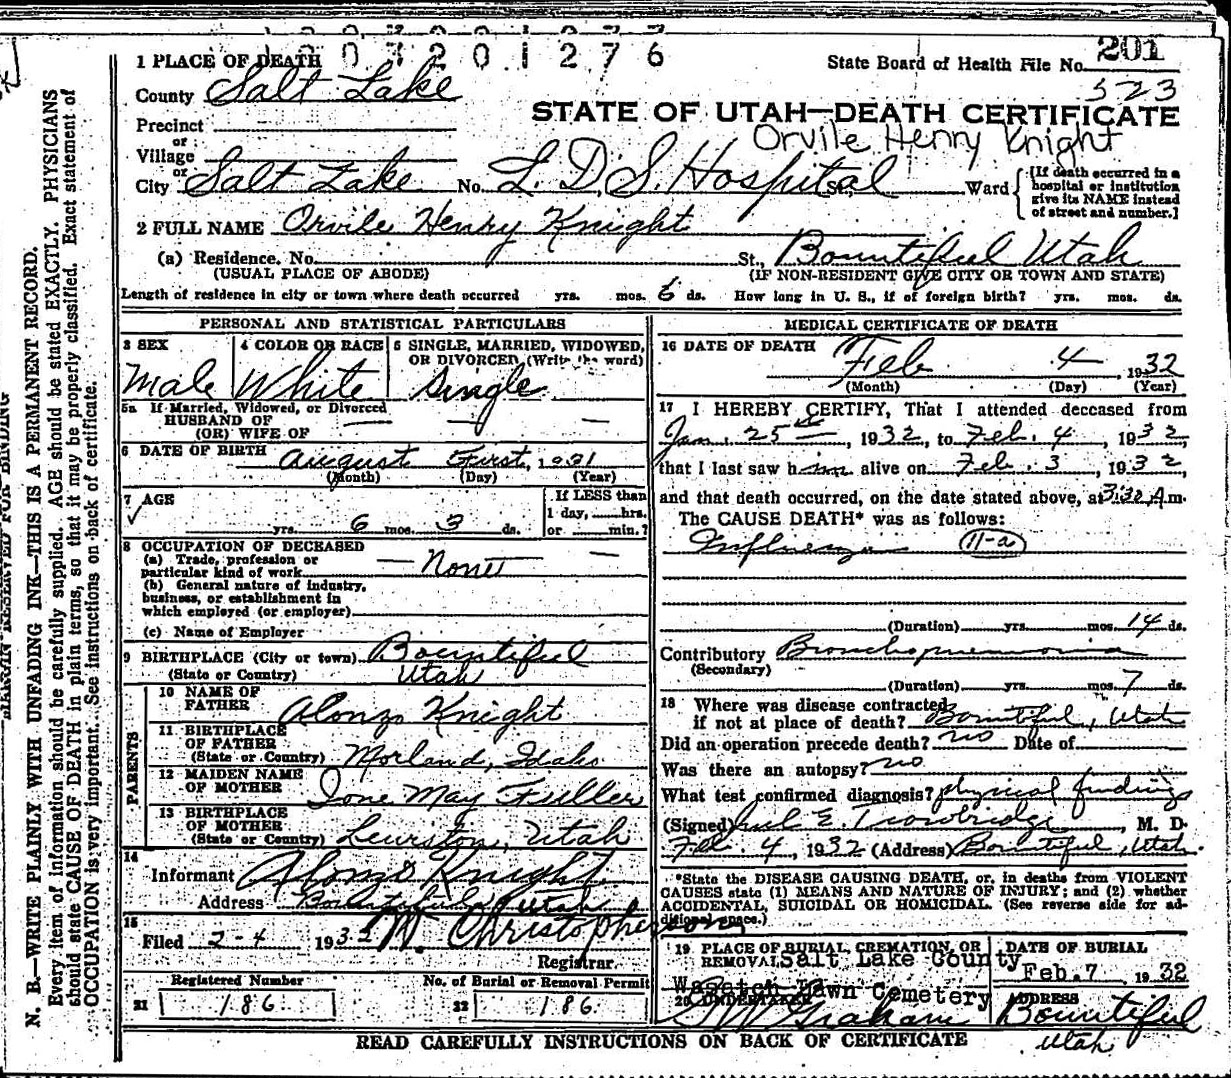 1003201276
201
1 PLACE OF DEATH
State Board of Health File No.
523
County Salt Lake
STATE OF UTAH—DEATH CERTIFICATE
Orvile Henry Knight
Precinct
or
Village
or
City Salt Lake No. L. D. S. Hospital St., Ward
[If death occurred in a
hospital or institution
give its NAME instead
of street and number.]
2 FULL NAME Orvile Henry Knight
(a) Residence. No. St., Bountiful Utah
(USUAL PLACE OF ABODE) (IF NON-RESIDENT GIVE CITY OR TOWN AND STATE)
Length of residence in city or town where death occurred yrs. mos. 6 ds. How long in U. S., if of foreign birth? yrs. mos. ds.
PERSONAL AND STATISTICAL PARTICULARS
3 SEX
Male
4 COLOR OR RACE
White
5 SINGLE, MARRIED, WIDOWED,
OR DIVORCED (Write the word)
Single
5a If Married, Widowed, or Divorced
HUSBAND OF
(OR) WIFE OF
6 DATE OF BIRTH August First, 1931
(Month) (Day) (Year)
7 AGE
yrs. 6 mos. 3 ds.
If LESS than
1 day, hrs.
or min.?
8 OCCUPATION OF DECEASED
(a) Trade, profession or
particular kind of work None
(b) General nature of industry,
business, or establishment in
which employed (or employer)
(c) Name of Employer
9 BIRTHPLACE (City or town) Bountiful
(State or Country) Utah
PARENTS
10 NAME OF
FATHER Alonzo Knight
11 BIRTHPLACE
OF FATHER
(State or Country) Morland, Idaho
12 MAIDEN NAME
OF MOTHER Ione May Fuller
13 BIRTHPLACE
OF MOTHER
(State or Country) Lewiston, Utah
14
Informant Alonzo Knight
Address Bountiful Utah
15
Filed 2-4 1932 M. Christopherson
Registrar.
Registered Number
21 186
No. of Burial or Removal Permit
22 186
MEDICAL CERTIFICATE OF DEATH
16 DATE OF DEATH
Feb 4 1932
(Month) (Day) (Year)
17 I HEREBY CERTIFY, That I attended deceased from
Jan. 25 th, 1932, to Feb. 4, 1932,
that I last saw him alive on Feb. 3, 1932,
and that death occurred, on the date stated above, at 3:30 A.m.
The CAUSE DEATH* was as follows:
Influenza 11-a
(Duration) yrs. mos. 14 ds.
Contributory Bronchopneumonia
(Secondary)
(Duration) yrs. mos. 7 ds.
18 Where was disease contracted
if not at place of death? Bountiful, Utah
Did an operation precede death? no Date of
Was there an autopsy? no
What test confirmed diagnosis? physical findings
(Signed) E. Trowbridge, M. D.
Feb. 4, 1932 (Address) Bountiful, Utah.
*State the DISEASE CAUSING DEATH, or, in deaths from VIOLENT
CAUSES state (1) MEANS AND NATURE OF INJURY; and (2) whether
ACCIDENTAL, SUICIDAL OR HOMICIDAL. (See reverse side for ad-
ditional space.)
19 PLACE OF BURIAL, CREMATION, OR
REMOVAL Salt Lake County
Wasatch Lawn Cemetery
DATE OF BURIAL
Feb. 7 1932
20 UNDERTAKER
Graham
ADDRESS
Bountiful
Utah
READ CAREFULLY INSTRUCTIONS ON BACK OF CERTIFICATE
MARGIN RESERVED FOR BINDING
N. B.—WRITE PLAINLY WITH UNFADING INK—THIS IS A PERMANENT RECORD.
Every item of information should be carefully supplied. AGE should be stated EXACTLY. PHYSICIANS
should state CAUSE OF DEATH in plain terms, so that it may be properly classified. Exact statement of
OCCUPATION is very important. See instructions on back of certificate.